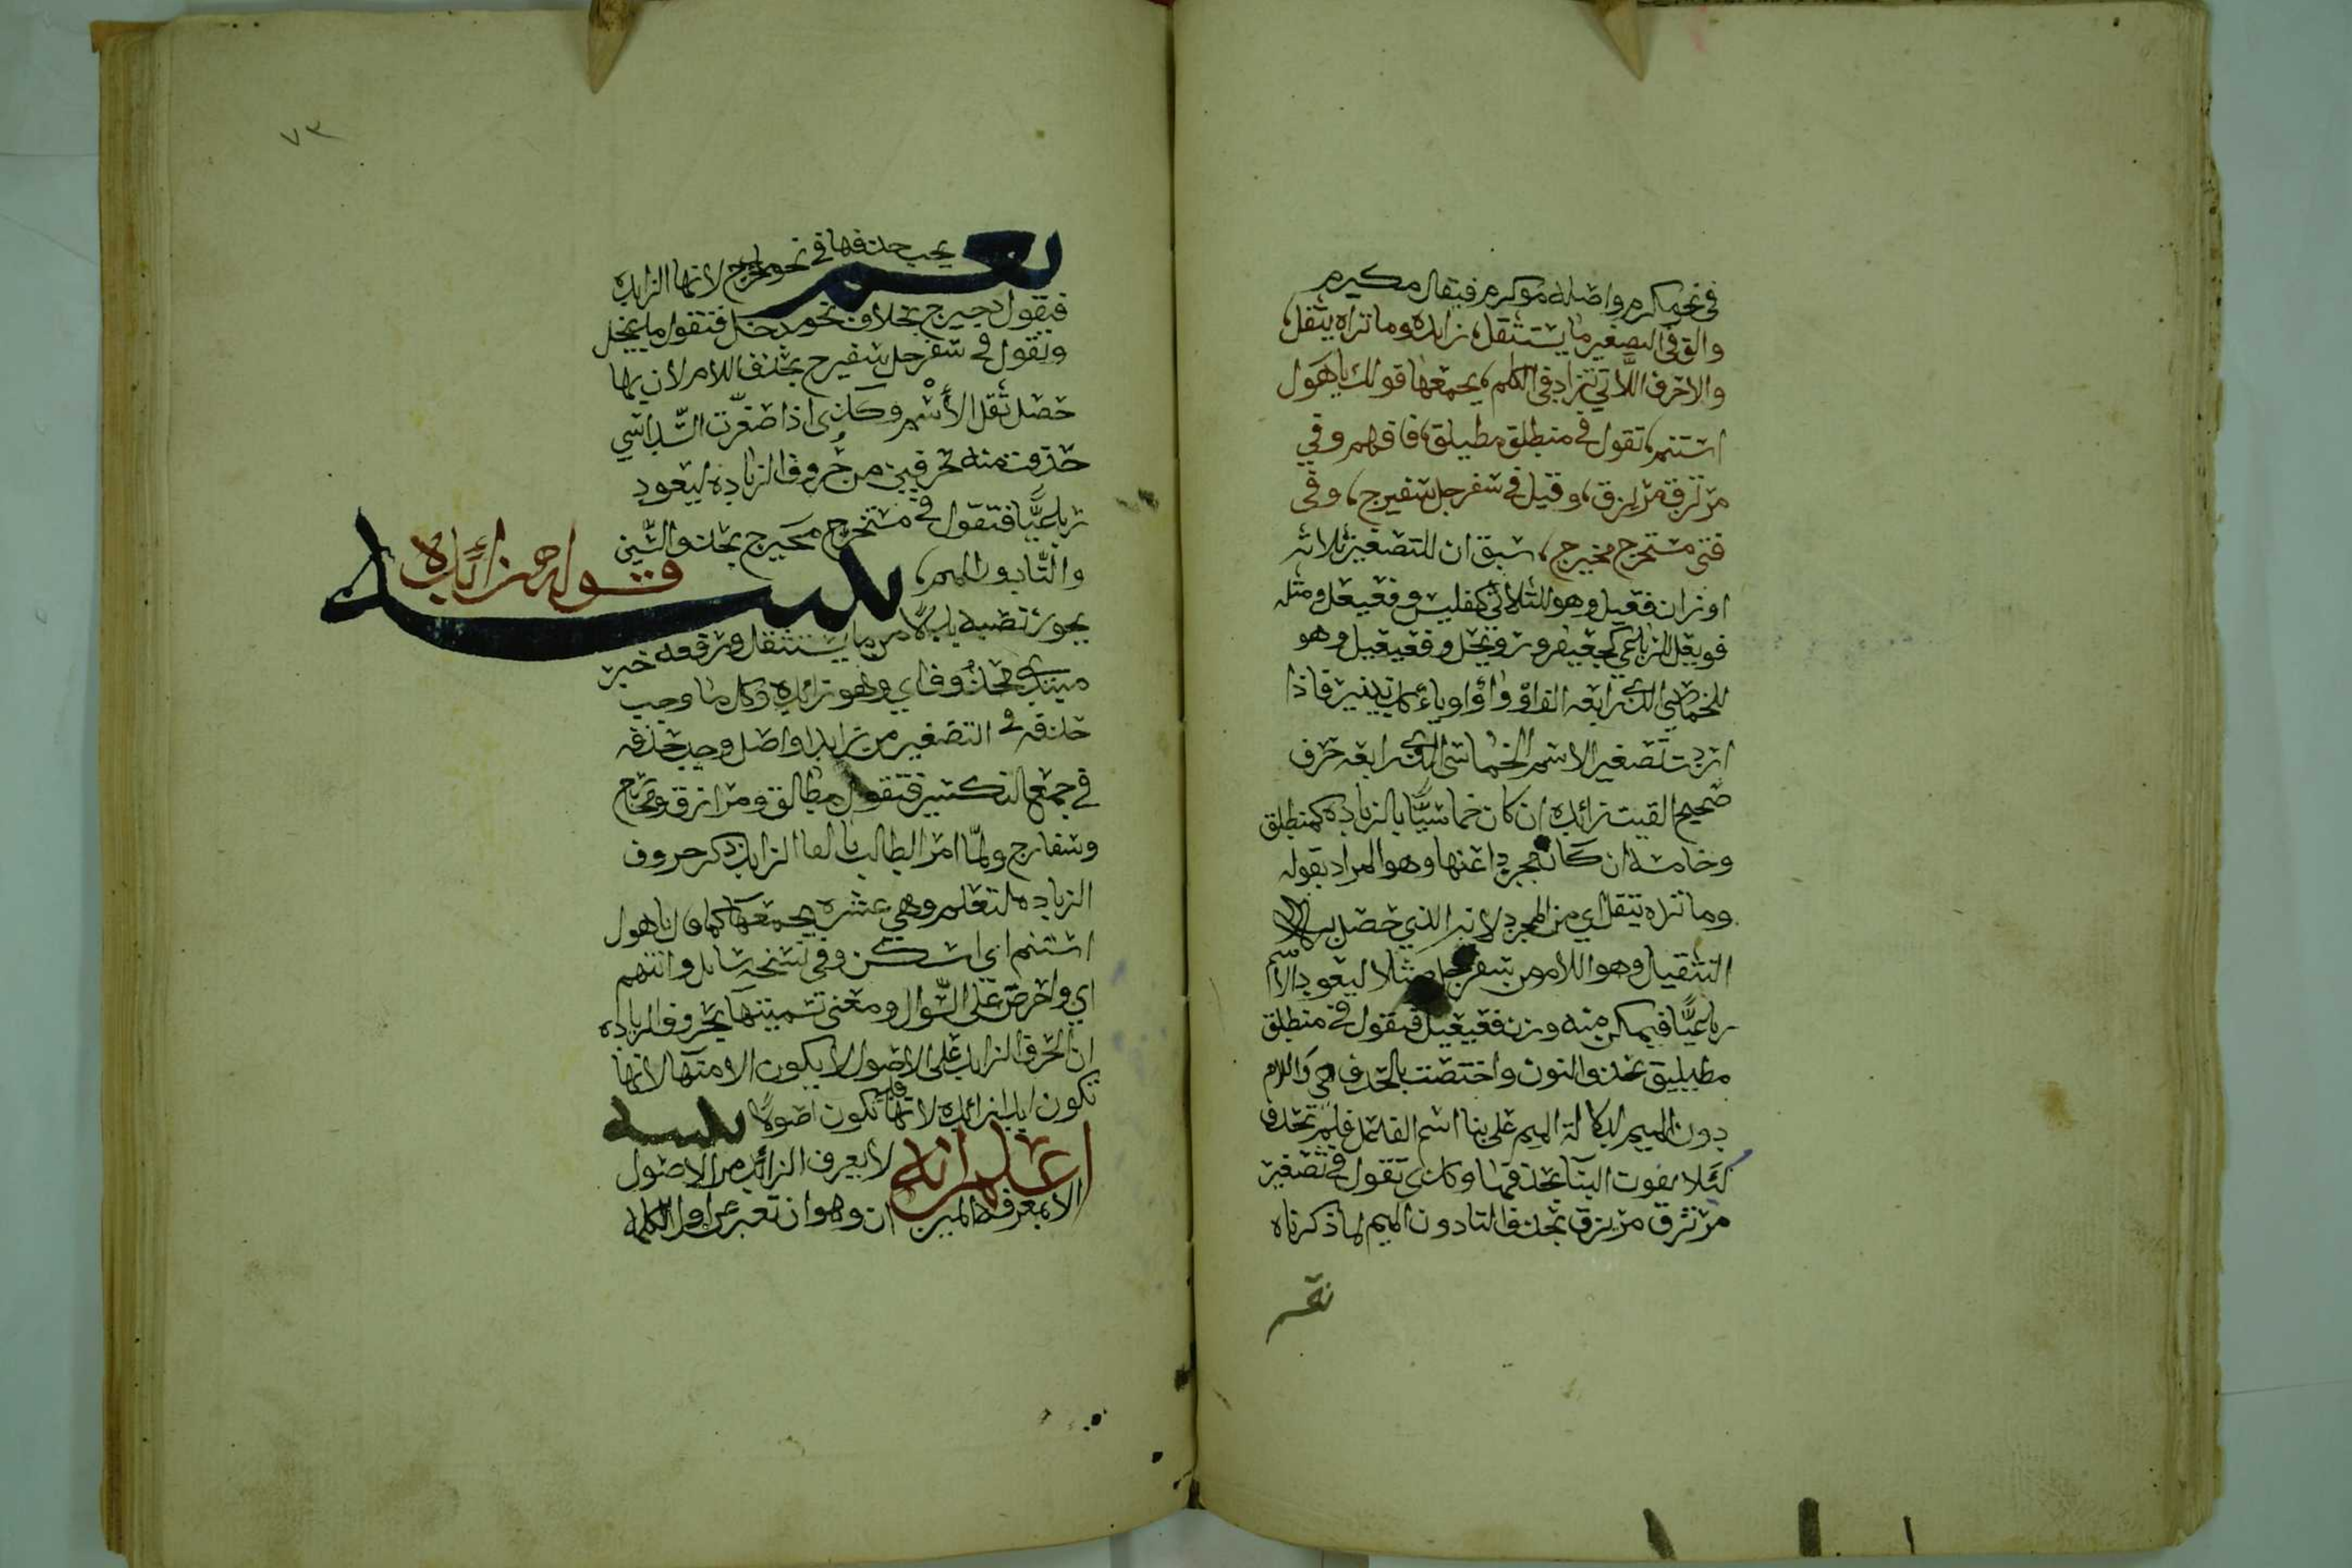 في نحو مكرم واصله موكرم فيقال مكيرم
والق في التصغير ما يستثقل، زايده وما تراه يثقل،
والاحرف اللاتي تزاد في الكلم، يجمعها قولك يا هول
استنم، تقول في منطلق مطيلق، فافهم وفي
مرتزق مريزق، وقيل في سفرجل سفيرج، وفي
فتى مستخرج مخيرج، سبق ان للتصغير ثلاثه
اوزان فعيل وهو للثلاثي كفليس وفعيعل ومثله
فويعل للرباعي كجعيفر ورويحل وفعيعيل وهو
للخماسي الذي رابعه الف او واو او ياء كدنينير فاذا
اردت تصغير الاسم الخماسي الذي رابعه حرف
صحيح القيت زائده ان كان خماسيًّا بالزياده كمنطلق
وخامسه ان كان مجردا عنها وهو المراد بقوله
وما تراه يثقل اي من المجرد لانه الذي حصل به
التثقيل وهو اللام من سفرجل مثلا ليعود الاسم
رباعيًّا فيمكن منه وزن فعيعيل فتقول في منطلق
مطيليق بحذف النون واختصت بالحذف هي واللام
دون الميم لدلالة الميم على بنا اسم الفاعل فلم تحذف
لئلا يفوت البنا بحذفها وكذى تقول في تصغير
مرتزق مريزق بحذف التا دون الميم لما ذكرناه
نعم
٧٣
نعم يجب حذفها في نحو مدحرج لانها الزايده
فيقول دحيرج بخلاف نحو مدخل فتقول مديخل
وتقول في سفرجل سفيرج بحذف اللام لان بها
حصل ثقل الاسم وكذى اذا صغرت السداسي
حذفت منه حرفين من حروف الزياده ليعود
رباعيًّا فتقول في مستخرج مخيرج بحذف السين
والتا دون الميم، تنبيه قوله زائده
يجوز نصبه بدلًا من ما يستثقل ورفعه خبر
مبتدى محذوف اي وهو زائده وكل ما وجب
حذفه في التصغير من زايد او اصل وجب حذفه
في جمع التكسير فتقول مطالق ومرازق ومخارج
وسفارج ولما امر الطالب بالقا الزايد ذكر حروف
الزياده لتعلم وهي عشره يجمعها كما قال يا هول
استنم اي اسكن وفي نسخه سايل وانتهم
اي واحرص على السوال ومعنى تسميتها بحروف الزياده
ان الحرف الزايد على الاصول لا يكون الا منها لا انها
تكون ابدا زائده لانها قد تكون اصولًا تنبيه
اعلم انه لا يعرف الزائد من الاصول
الا بمعرفة الميزان وهو ان تعبر عن اول الكلمه